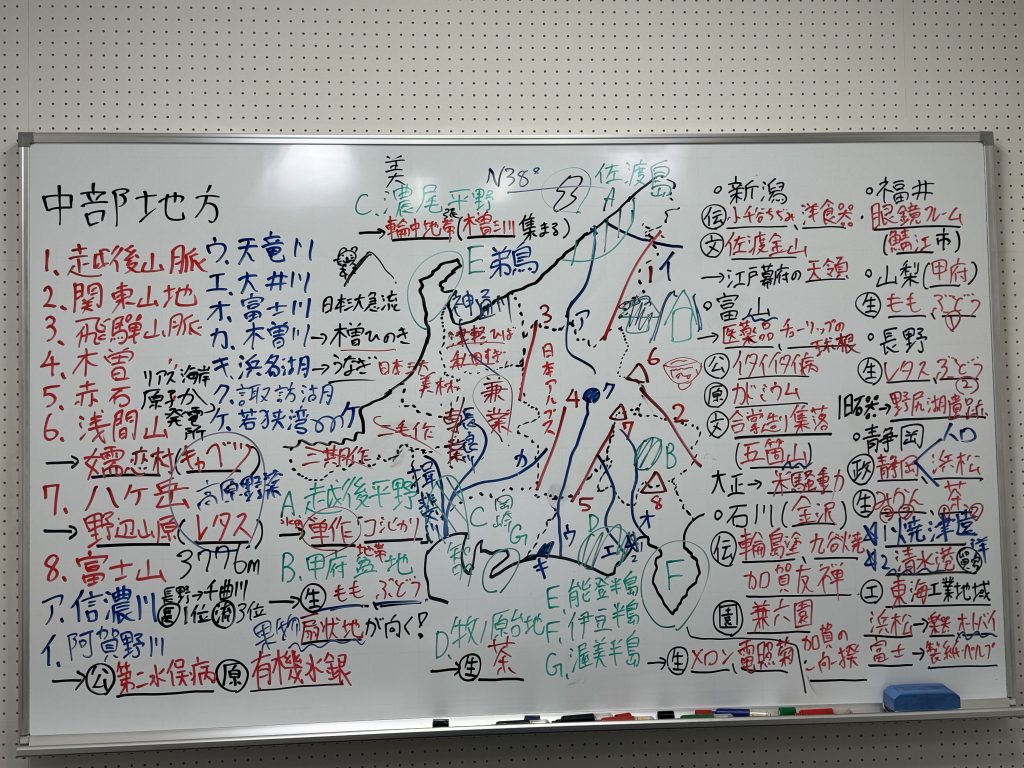 中部地方
1. 越後山脈
2. 関東山地
3. 飛騨山脈
4. 木曽
5. 赤石
6. 浅間山
→嬬恋村(キャベツ
7. 八ヶ岳
高原野菜
→野辺山原(レタス)
8. 富士山 3776m
ア. 信濃川
長野→千曲川
1位 3位
イ. 阿賀野川
→公 第二水俣病 原 有機水銀
ウ. 天竜川
エ. 大井川
オ. 富士川
日本三大急流
カ. 木曽川→木曽ひのき
キ. 浜名湖→うなぎ
ク. 諏訪湖
ケ. 若狭湾
リアス海岸
原子力
発電所
日本三大
美林
津軽ひば
秋田すぎ
二毛作
三期作
兼業
A. 越後平野
→単作 コシヒカリ
B. 甲府盆地
→生 もも、ぶどう
果物 扇状地が向く!
美
C. 濃尾平野
→輪中地帯(木曽三川 集まる)
N38°
佐渡島
A
1
イ
E
弟鳥
神通川
3
ア
日本アルプス
4
ク
7
6
2
B
8
カ
ケ
長良川
揖斐
5
C
岡崎
G
知
キ
ウ
D
エ
オ
F
D. 牧ノ原台地
→生 茶
E. 能登半島
F. 伊豆半島
G. 渥美半島
→生 メロン、電照菊
○新潟
伝 小千谷ちぢみ、洋食器
文 佐渡金山
→江戸幕府の天領
○富山
→医薬品、チューリップの球根
公 イタイイタイ病
原 カドミウム
文 合掌造り集落
(五箇山)
大正→米騒動
○石川(金沢)
伝 輪島塗、九谷焼
加賀友禅
園 兼六園
加賀の
一向一揆
○福井
・眼鏡フレーム
(鯖江市)
○山梨(甲府)
生 もも、ぶどう
○長野
生 レタス、ぶどう
②
旧石器→野尻湖遺跡
○静岡
人口
政 静岡 浜松
生 みかん 茶
1 焼津港 遠洋
2 清水港
工 東海工業地域
浜松→楽器 オートバイ
富士→製紙・パルプ